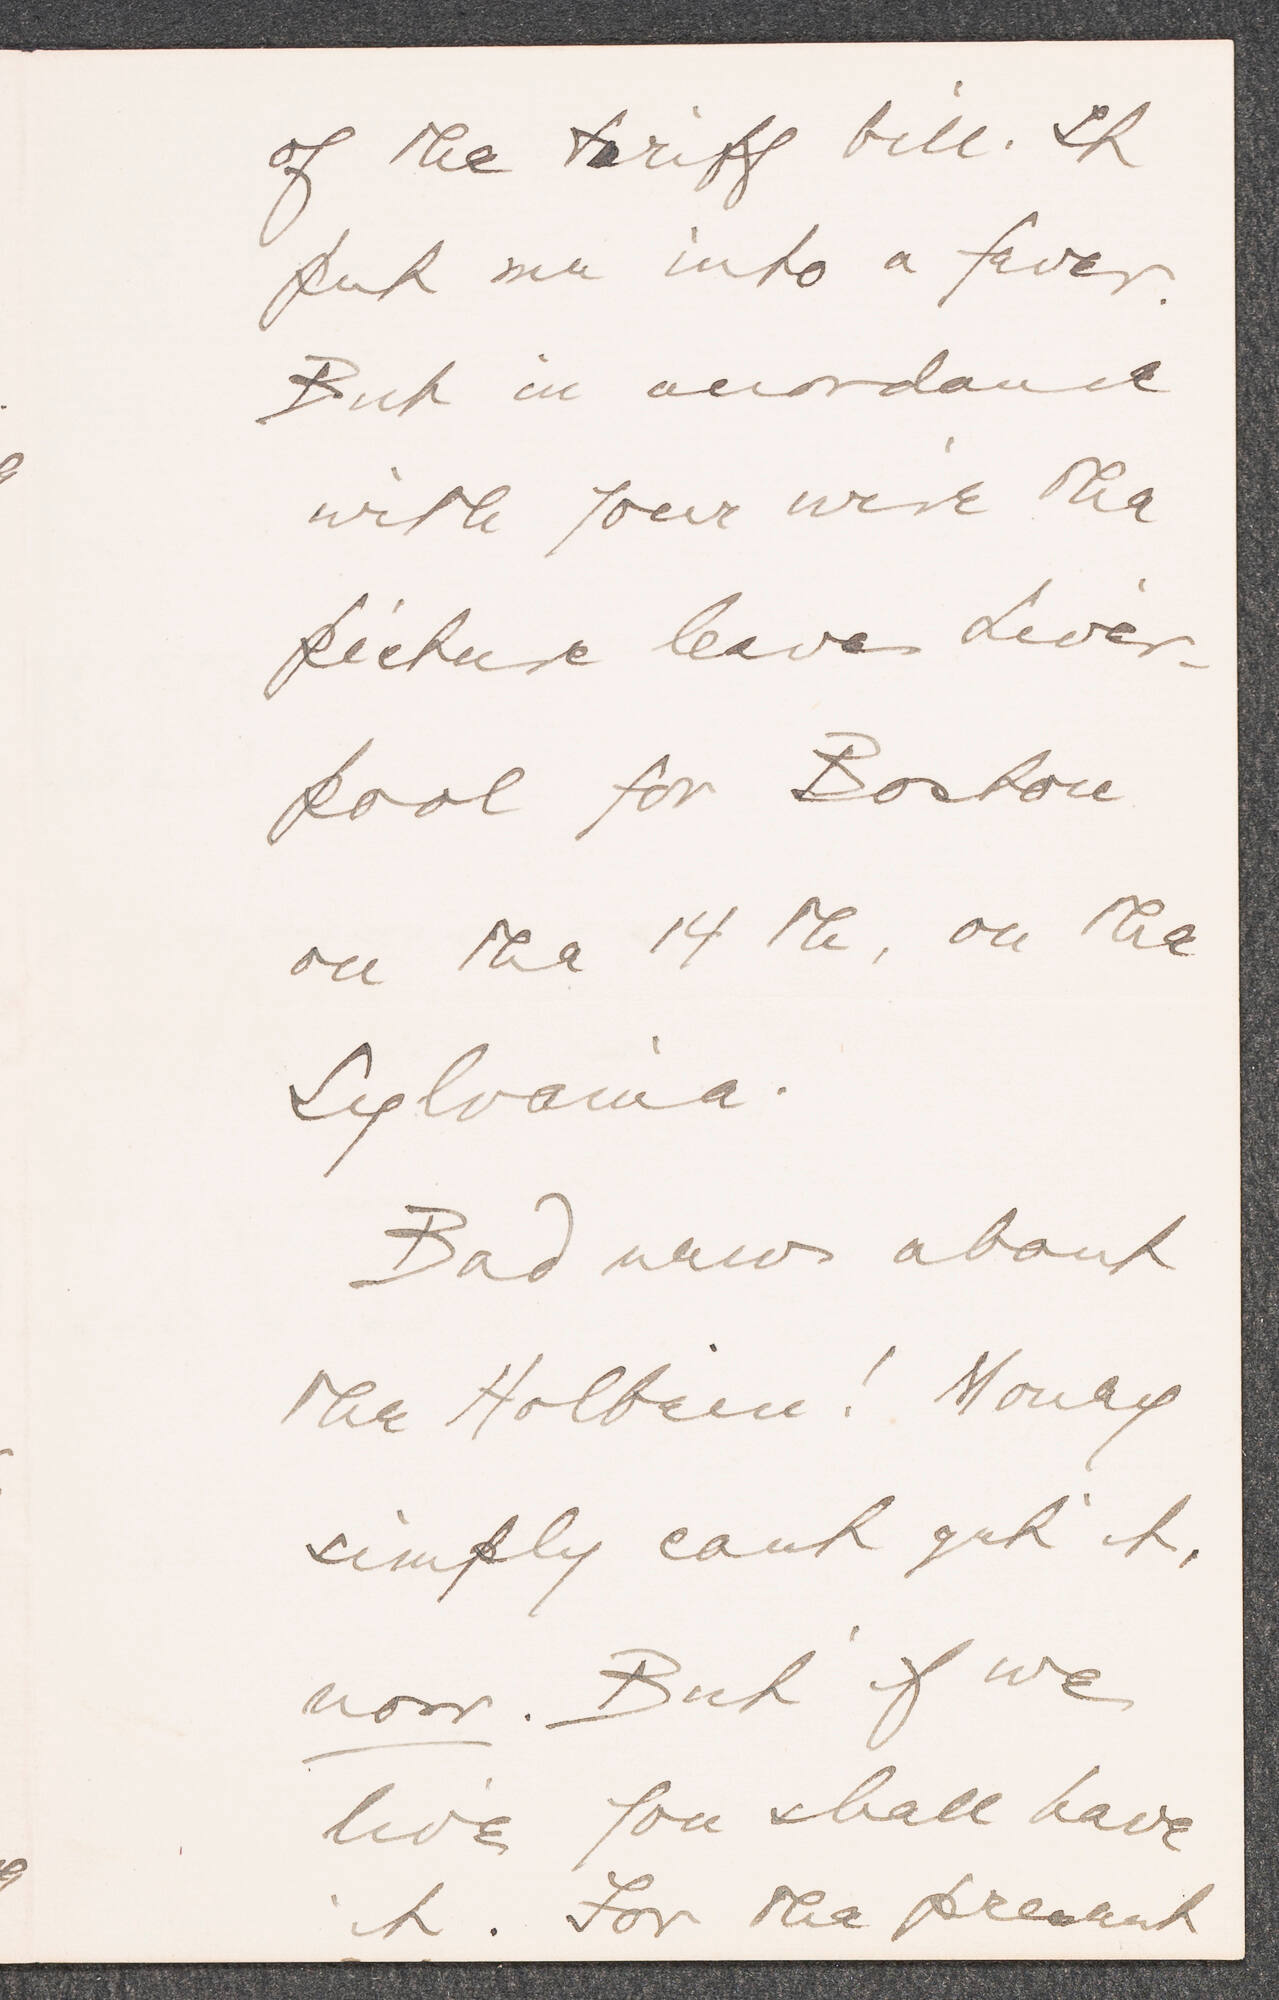 of the tariff bill. It
put me into a fever.
But in accordance
with your wire the
picture leaves Liver-
pool for Boston
on the 14th, on the
Sylvania.
Bad news about
the Holbein! Money
simply cant get it,
now. But if we
live you shall have
it. For the present